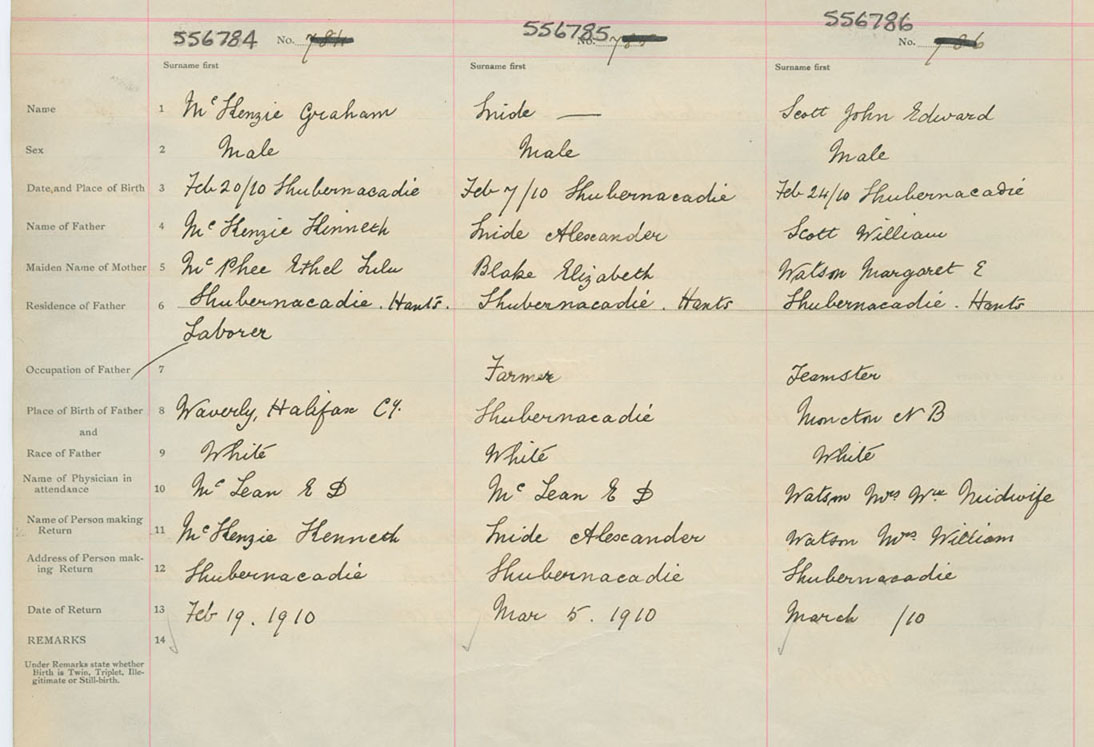 556784 No. 784
556785 No. 785
556786 No. 786
Surname first Surname first Surname first
Name 1 McKenzie Graham Snide — Scott John Edward
Sex 2 Male Male Male
Date, and Place of Birth 3 Feb 20/10 Shubernacadie Feb 7/10 Shubernacadie Feb 24/10 Shubernacadie
Name of Father 4 McKenzie Kinneth Snide Alexander Scott William
Maiden Name of Mother 5 McPhee Ethel Lulu Blake Elizabeth Watson Margaret E
Residence of Father 6 Shubernacadie. Hants. Shubernacadie. Hants Shubernacadie. Hants
Laborer
Occupation of Father 7 Farmer Teamster
Place of Birth of Father 8 Waverly, Halifax Cy. Shubernacadie Moncton N B
and
Race of Father 9 White White White
Name of Physician in
attendance 10 McLean E D McLean E D Watson Mrs Wm Midwife
Name of Person making
Return 11 McKenzie Kenneth Snide Alexander Watson Mrs William
Address of Person mak-
ing Return 12 Shubernacadie Shubernacadie Shubernacadie
Date of Return 13 Feb 19. 1910 Mar 5. 1910 March /10
REMARKS 14
Under Remarks state whether
Birth is Twin, Triplet, Ille-
gitimate or Still-birth.